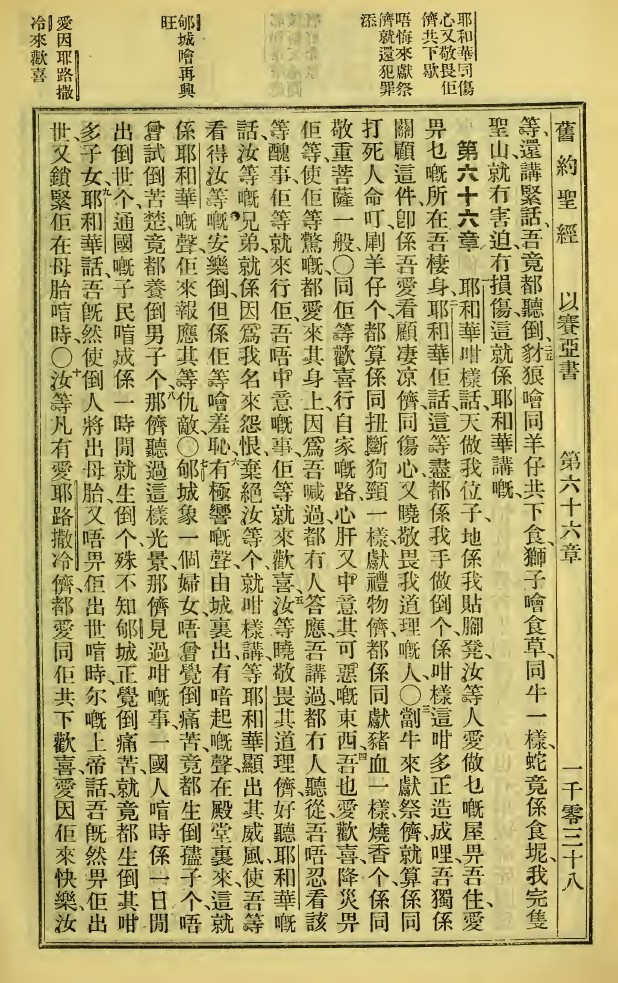 耶和華同傷
心又敬畏佢
儕共下歇
唔悔來獻祭
儕就還犯罪
添
郇城噲再興
旺
愛因耶路撒
冷來歡喜
舊約聖經 以賽亞書 第六十六章 一千零三十八
等、還講緊話、吾竟都聽倒、豺狼噲同羊仔共下食、獅子噲食草、同牛一樣、蛇竟係食坭、我完隻
聖山、就冇害迫、冇損傷、這就係耶和華講嘅、
第六十六章 耶和華咁樣話、天做我位子、地係我貼腳凳、汝等人愛做乜嘅屋畀吾住、愛
畀乜嘅所在吾棲身、二耶和華佢話、這等盡都係我手做倒个、係咁樣這咁多正造成哩、吾獨係
關顧這件、卽係吾愛看顧凄凉儕同傷心、又曉敬畏我道理嘅人〇三劏牛來獻祭儕、就算係同
打死人命、叮刷羊仔个、都算係同扭斷狗頸一樣、獻禮物儕、都係同獻豬血一樣、燒香个、係同
敬重菩薩一般〇同佢等歡喜行自家嘅路、心肝又中意其可惡嘅東西、四吾也愛歡喜降災畀
佢等、使佢等驚嘅都愛來其身上、因爲吾喊過都冇人答應、吾講過都冇人聽從、吾唔忍看該
等醜事、佢等就來行、佢吾唔中意嘅事、佢等就來歡喜、五汝等曉敬畏其道理儕、好聽耶和華嘅
話、汝等嘅兄弟、就係因爲我名來怨恨、棄絕汝等个、就咁樣講、等耶和華顯出其威風、使吾等
看得汝等嘅安樂倒、但係佢等噲羞恥、六有極響嘅聲由城裏出、有喑起嘅聲在殿堂裏來、這就
係耶和華嘅聲、佢來報應其等仇敵〇七郇城象一個婦女、唔曾覺倒痛苦、竟都生倒孻子个、唔
曾試倒苦楚、竟都養倒男子个、八那儕聽過這樣光景、那儕見過咁嘅事、一國人喧時係一日閒
出倒世个、通國嘅子民喧成係一時閒就生倒个、殊不知郇城正覺倒痛苦、就竟都生倒其咁
多子女、九耶和華話、吾旣然使倒人將出母胎、又唔畀佢出世喧時、尔嘅上帝話、吾旣然畀佢出
世、又鎖緊佢在母胎喧時〇十汝等凡有愛耶路撒冷儕、都愛同佢共下歡喜、愛因佢來快樂、汝